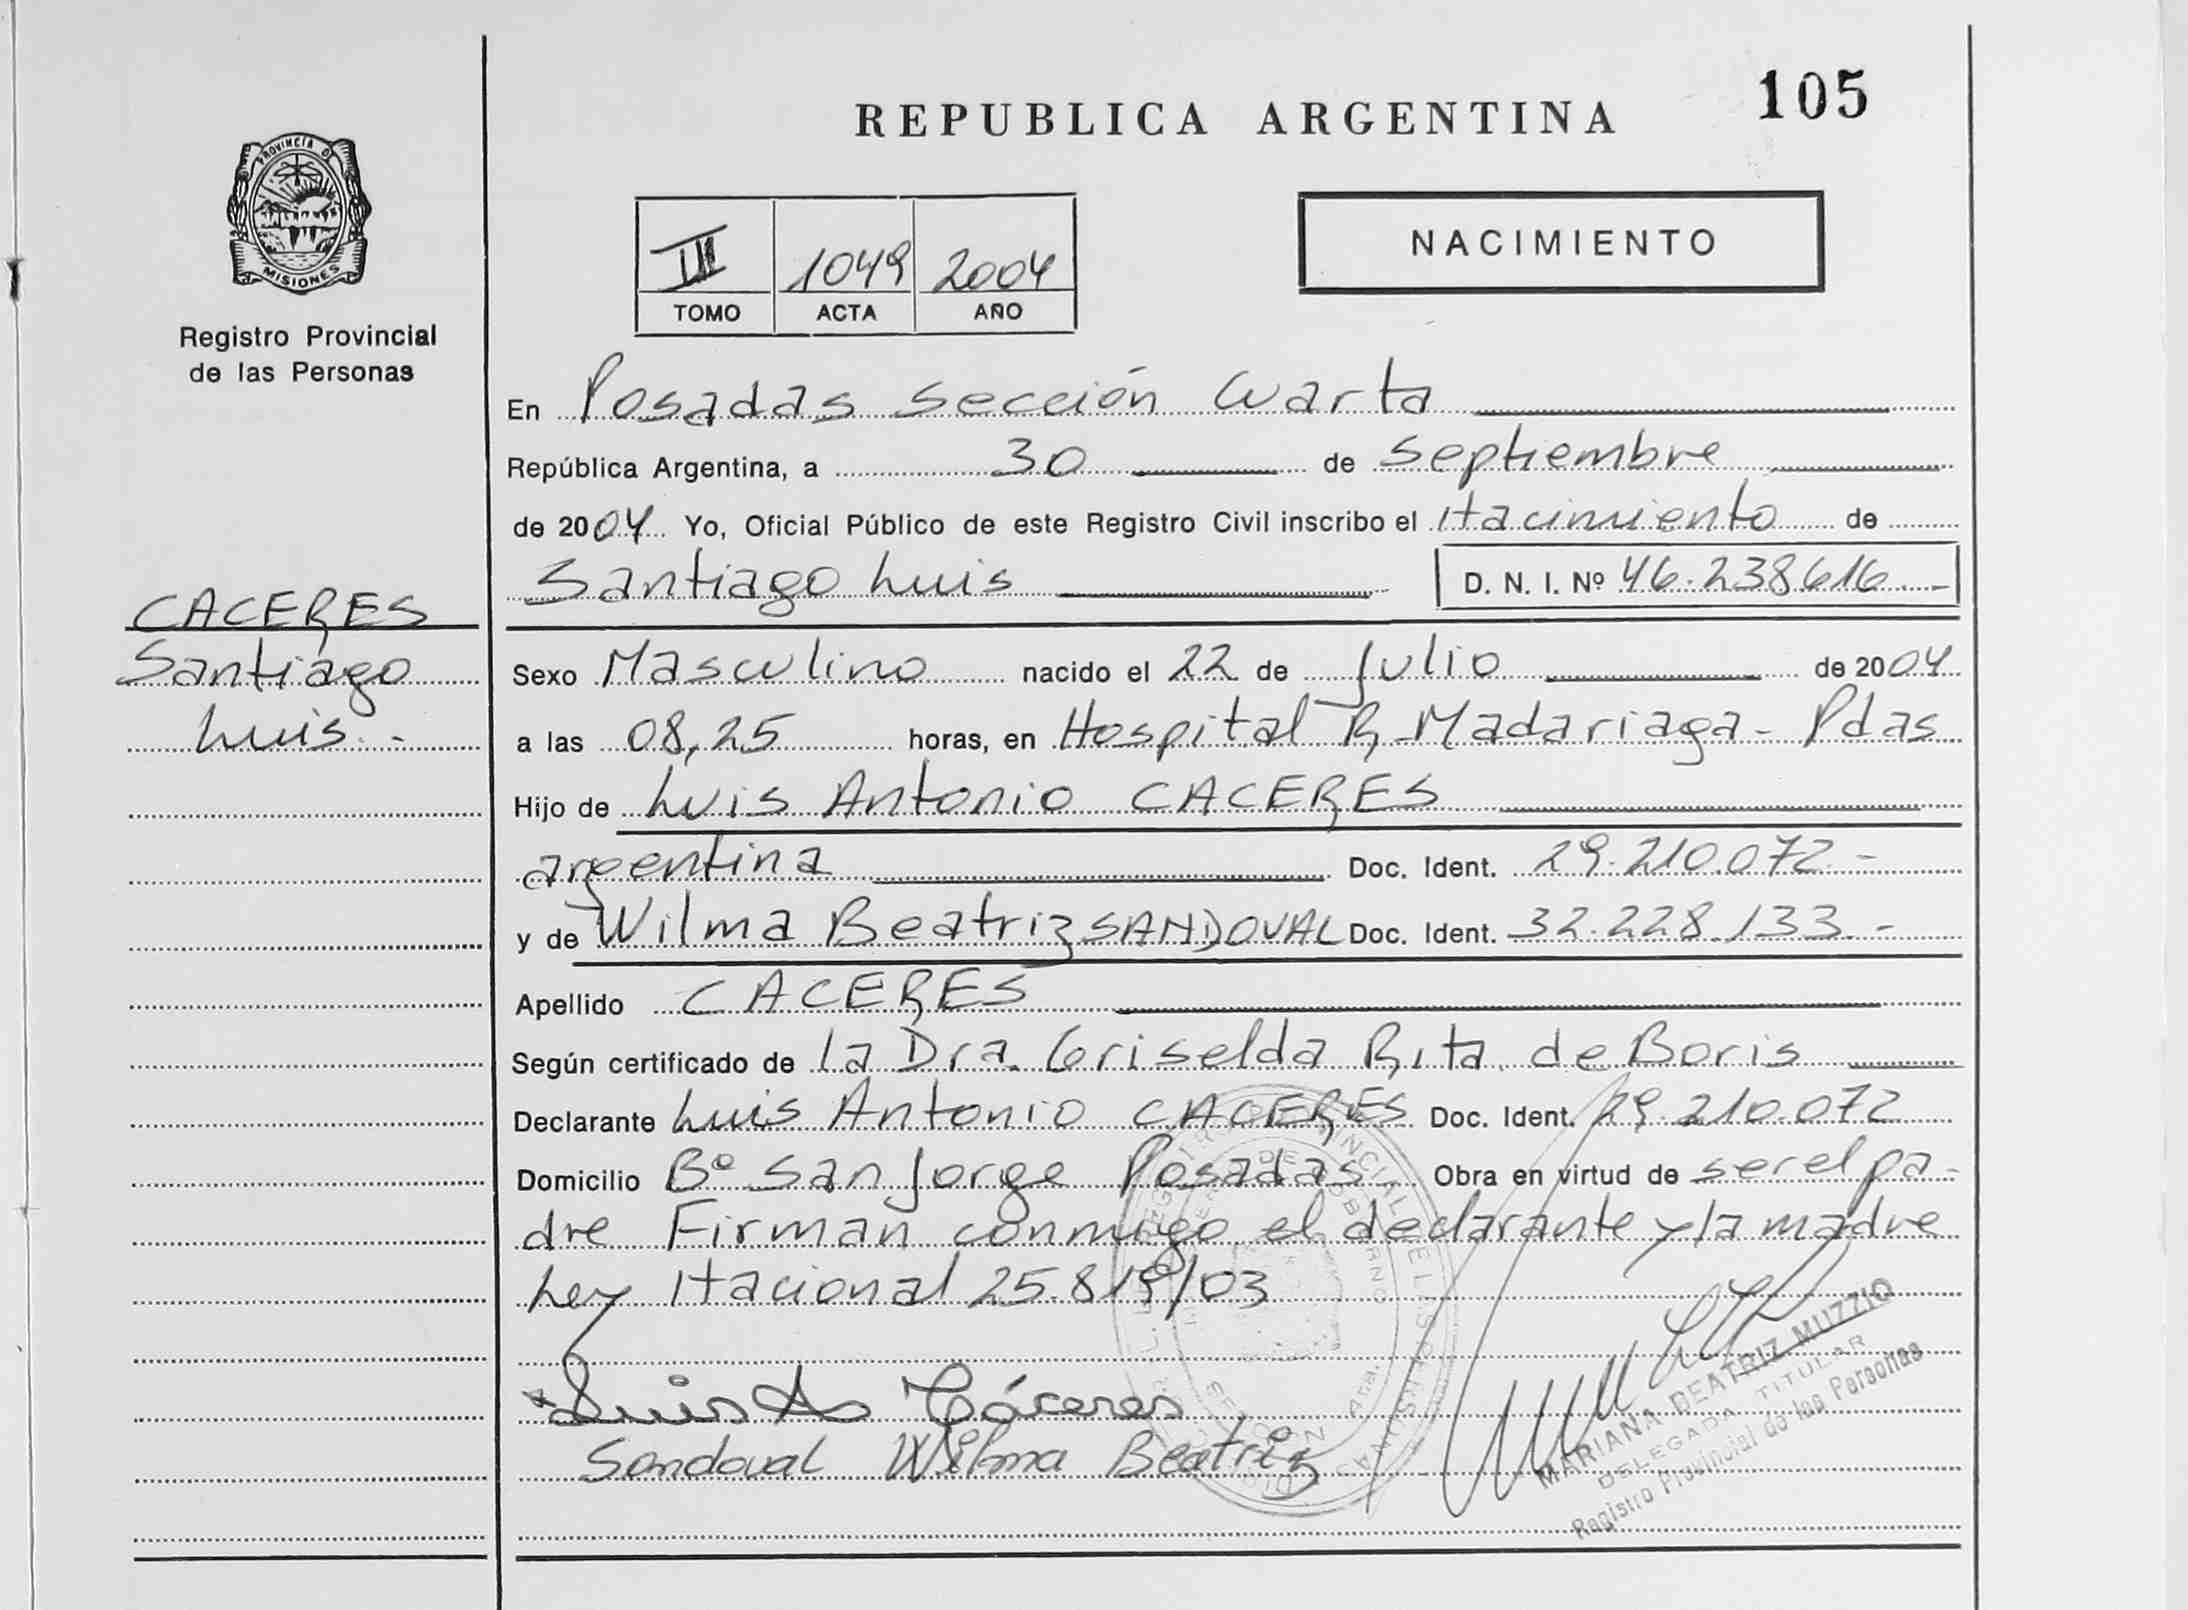 REPUBLICA ARGENTINA
105
PROVINCIA DE
MISIONES
Registro Provincial
de las Personas
III 1049 2004
TOMO ACTA AÑO
NACIMIENTO
En Posadas Sección Cuarta
República Argentina, a 30 de Septiembre
de 2004 Yo, Oficial Público de este Registro Civil inscribo el Nacimiento de
Santiago Luis D. N. I. Nº 46.238.616.-
CACERES
Santiago
Luis.-
Sexo Masculino nacido el 22 de Julio de 2004
a las 08,25 horas, en Hospital R. Madariaga - Pdas
Hijo de Luis Antonio CACERES
argentina Doc. Ident. 29.210.072.-
y de Wilma Beatriz SANDOVAL Doc. Ident. 32.228.133.-
Apellido CACERES
Según certificado de la Dra. Griselda Rita de Boris
Declarante Luis Antonio CACERES Doc. Ident. 29.210.072
Domicilio Bº San Jorge Posadas Obra en virtud de ser el pa-
dre Firman conmigo el declarante y la madre
Ley Nacional 25.819/03
Luis A Cáceres
Sandoval Wilma Beatriz
MARIANA BEATRIZ MUZZIO
DELEGADA TITULAR
Registro Provincial de las Personas